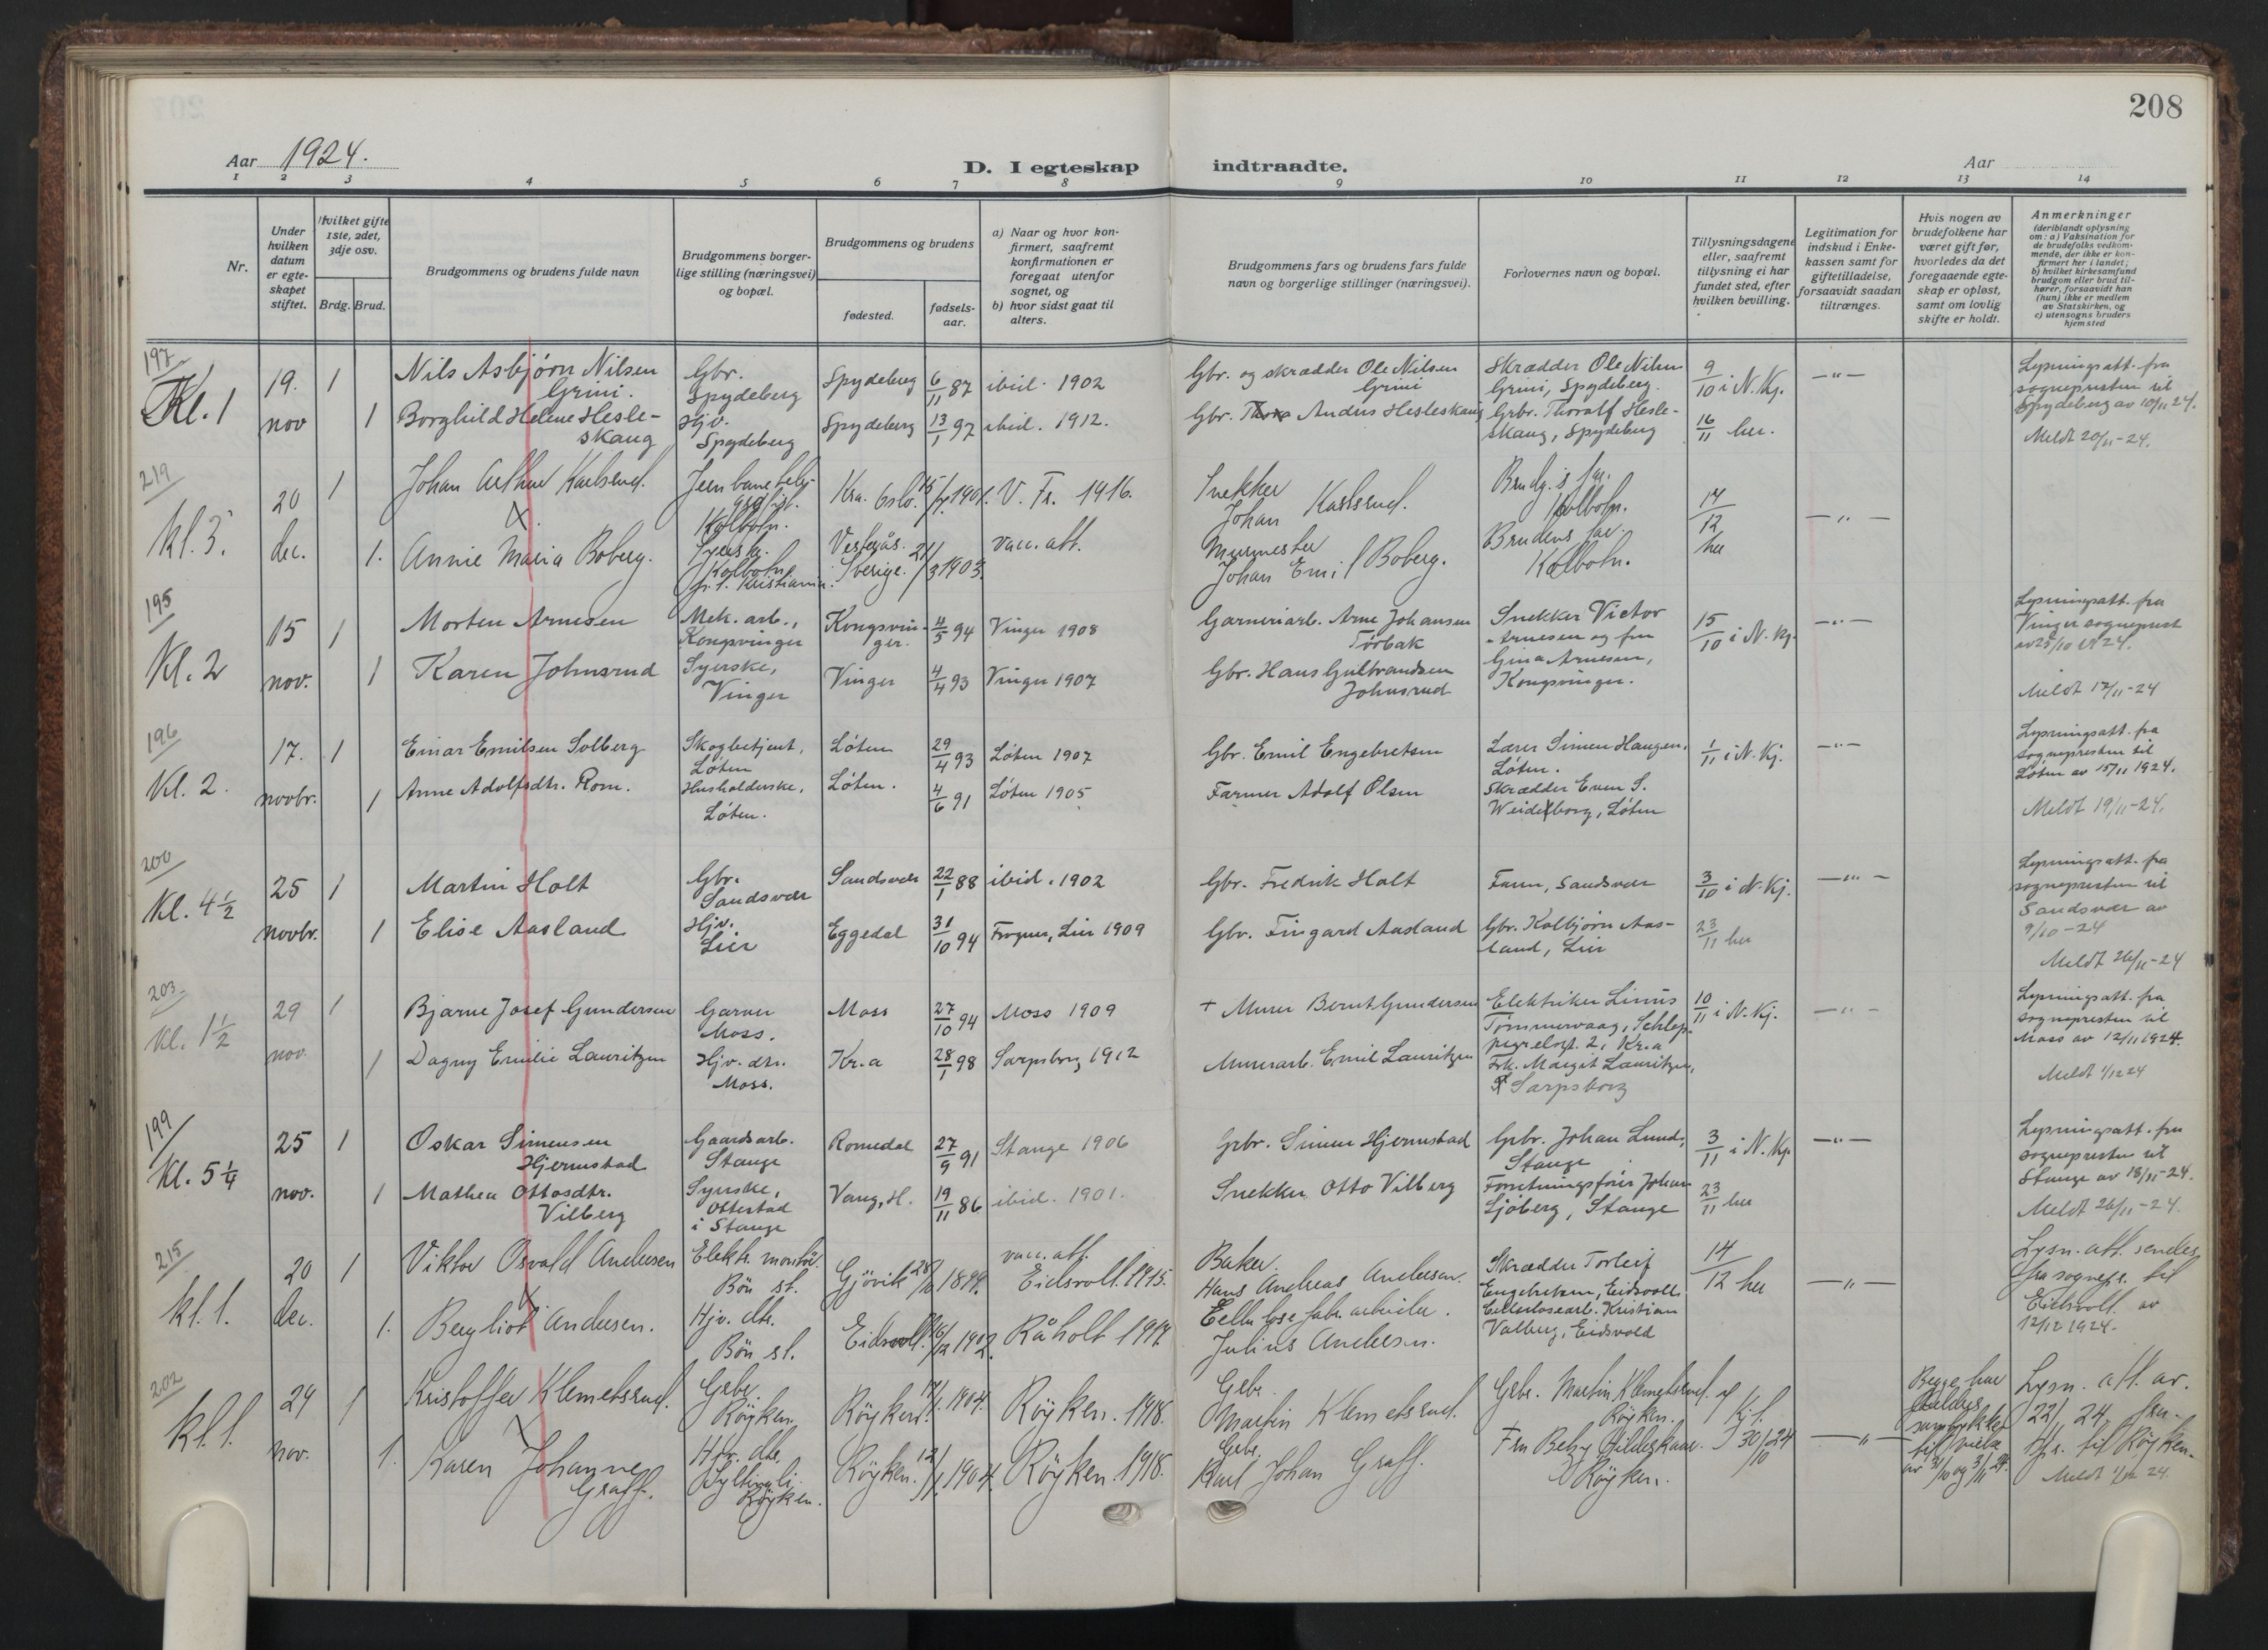 208
Aar 1924.
D. I egteskap indtraadte.
Aar
1 2 3 4 5 6 7 8 9 10 11 12 13 14
Nr.
Under hvilken datum er egteskapet stiftet.
Hvilket gifte 1ste, 2det, 3dje osv.
Brdg. Brud.
Brudgommens og brudens fulde navn
Brudgommens borgerlige stilling (næringsvei) og bopæl.
Brudgommens og brudens
fødested.
fødselsaar.
a) Naar og hvor konfirmert, saafremt konfirmationen er foregaat utenfor sognet, og
b) hvor sidst gaat til alters.
Brudgommens fars og brudens fars fulde navn og borgerlige stillinger (næringsvei).
Forlovernes navn og bopæl.
Tillysningsdagene eller, saafremt tillysning ei har fundet sted, efter hvilken bevilling.
Legitimation for indskud i Enkekassen samt for giftetilladelse, forsaavidt saadan tiltrænges.
Hvis nogen av brudefolkene har været gift før, hvorledes da det foregaaende egteskap er opløst, samt om lovlig skifte er holdt.
Anmerkninger (deriblandt oplysning om: a) Vaksination for de brudefolks vedkommende, der ikke er konfirmert her i landet; b) hvilket kirkesamfund brudgom eller brud tilhører, forsaavidt han (hun) ikke er medlem av Statskirken, og c) utensogns bruders hjemsted
197
Kl. 1
19. nov
1
Nils Asbjørn Nilsen Grini.
Gbr. Spydeberg
Spydeberg
6/11 87
ibid. 1902
Gbr. og skrædder Ole Nilsen Grini
Skrædder Ole Nilsen Grini, Spydeberg.
9/10 i N. Kj.
— " —
Lysningsatt. fra sognepresten til Spydeberg av 10/11 24.
1
Borghild Helene Hesleskaug
Hjv. Spydeberg
Spydeberg
13/1 97
ibid. 1912.
Gbr. Anders Hesleskaug
Grbr. Thoralf Hesleskaug, Spydeberg
16/11 her.
Meldt 20/11-24.
219
kl. 3.
20 dec.
1
Johan Arthur Karlsrud.
Kolbotn.
Kra. Oslo.
15/7 1901.
V. Fr. 1916.
Snekker Johan Karlsrud.
Brudg.s far. Kolbotn.
14/12 her
— " —
1.
Annie Maria Boberg.
Syersk. Kolbotn
Vesterås. Sverige.
21/3 1903.
vacc. att.
Murmester Johan Emil Boberg.
Brudens far. Kolbotn.
195
Kl. 2
15 nov.
1
Morten Arnesen
Mek. arb., Kongsvinger
Kongsvinger.
4/5 94
Vinger 1908
Garneriarb. Arne Johansen Torbak
Snekker Victor Arnesen og fru Gina Arnesen, Kongsvinger.
15/10 i N. Kj.
— " —
Lysningsatt. fra Vinger sogneprest av 25/10 24.
1
Karen Johnsrud
Syerske, Vinger
Vinger
4/4 93
Vinger 1907
Gbr. Hans Gulbrandsen Johnsrud
Meldt 17/11-24
196
Kl. 2.
17. novbr.
1
Einar Emilsen Solberg
Skogbetjent, Løten
Løten
29/4 93
Løten 1907
Gbr. Emil Engebretsen
Lærer Simen Haugen, Løten.
1/11 i N. Kj.
— " —
Lysningsatt. fra sognepresten til Løten av 15/11 1924.
1
Anne Adolfsdtr. Rom.
Husholderske, Løten.
Løten.
4/6 91
Løten 1905
Farmer Adolf Olsen
Skrædder Even S. Weidelborg, Løten
Meldt 19/11-24.
200
Kl. 4 1/2
25 novbr.
1
Martin Holt
Gbr. Sandsvær
Sandsvær
22/1 88
ibid. 1902
Gbr. Fredrik Holt
Faren, Sandsvær
3/10 i N. Kj.
— " —
Lysningsatt. fra sognepresten til Sandsvær av 9/10-24
1
Elise Aasland
Hjv. Lier
Eggedal
31/10 94
Frogner, Lier 1909
Gbr. Fingard Aasland
Gbr. Kolbjørn Aasland, Lier
23/11 her
Meldt 26/11-24
203
Kl. 1 1/2
29 nov.
1
Bjarne Josef Gundersen
Garver Moss.
Moss
27/10 94
Moss 1909
+ Murer Bernt Gundersen
Elektriker Linus Tømmervaag, Schleppegrelsgt. 2, Kr.a
10/11 i N. Kj.
— " —
Lysningsatt. fra sognepresten til Moss av 12/11 1924.
1
Dagny Emilie Lauritzen
Hjv. dtr. Moss.
Kr.a
28/1 98
Sarpsborg 1912
Murerarb. Emil Lauritzen
Frk. Margit Lauritzen, Sarpsborg
Meldt 1/12 24
199
Kl. 5 1/4
25 nov.
1
Oskar Simensen Hjermstad
Gaardsarb. Stange
Romedal
27/9 91
Stange 1906
Grbr. Simen Hjermstad
Grbr. Johan Lund, Stange
3/11 i N. Kj.
— " —
Lysningsatt. fra sognepresten til Stange av 18/11-24.
1
Mathea Ottosdtr. Vilberg
Syerske, Ottestad i Stange
Vang, H.
19/11 86
ibid. 1901.
Snekker Otto Vilberg
Forretningsfører Johan Sjøberg, Stange
23/11 her
Meldt 26/11-24.
215
kl. 1.
20 dec.
1
Viktor Osvald Andersen
Elektr. montör. Bön st.
Gjövik
1899.
vacc. att. Eidsvoll. 1915.
Baker. Hans Andreas Andersen.
Skrædder Torleif Engebretsen, Eidsvoll.
14/12 her
— " —
Lysn. att. sendes fra sognepr. til Eidsvoll. av 12/12 1924.
1.
Bergliot Andersen.
Hjv. dtr. Bön st.
Eidsvoll.
16/12 1902.
Råholt 1917
Cellulose fabr. arbeider. Julius Andersen.
Cellulosearb. Kristian Valberg, Eidsvold
202
kl. 1.
24 nov.
1
Kristoffer Klemetsrud.
Grbr. Röyken.
Röyken.
1904.
Röyken. 1918.
Grbr. Martin Klemetsrud.
Grbr. Martin Klemetsrud. Röyken.
30/10 24
— " —
Begge har forældres samtykke til vielse av 31/10 og 3/11 24.
Lysn. att. av. 22/11 24 fra. til Röyken.
1.
Karen Johanne Graff.
Hjv. dtr. Röyken.
Röyken.
1904.
Röyken. 1918.
Grbr. Karl Johan Graff.
Fru Betzy Gildeskaar. Röyken.
Meldt 1/12 24.